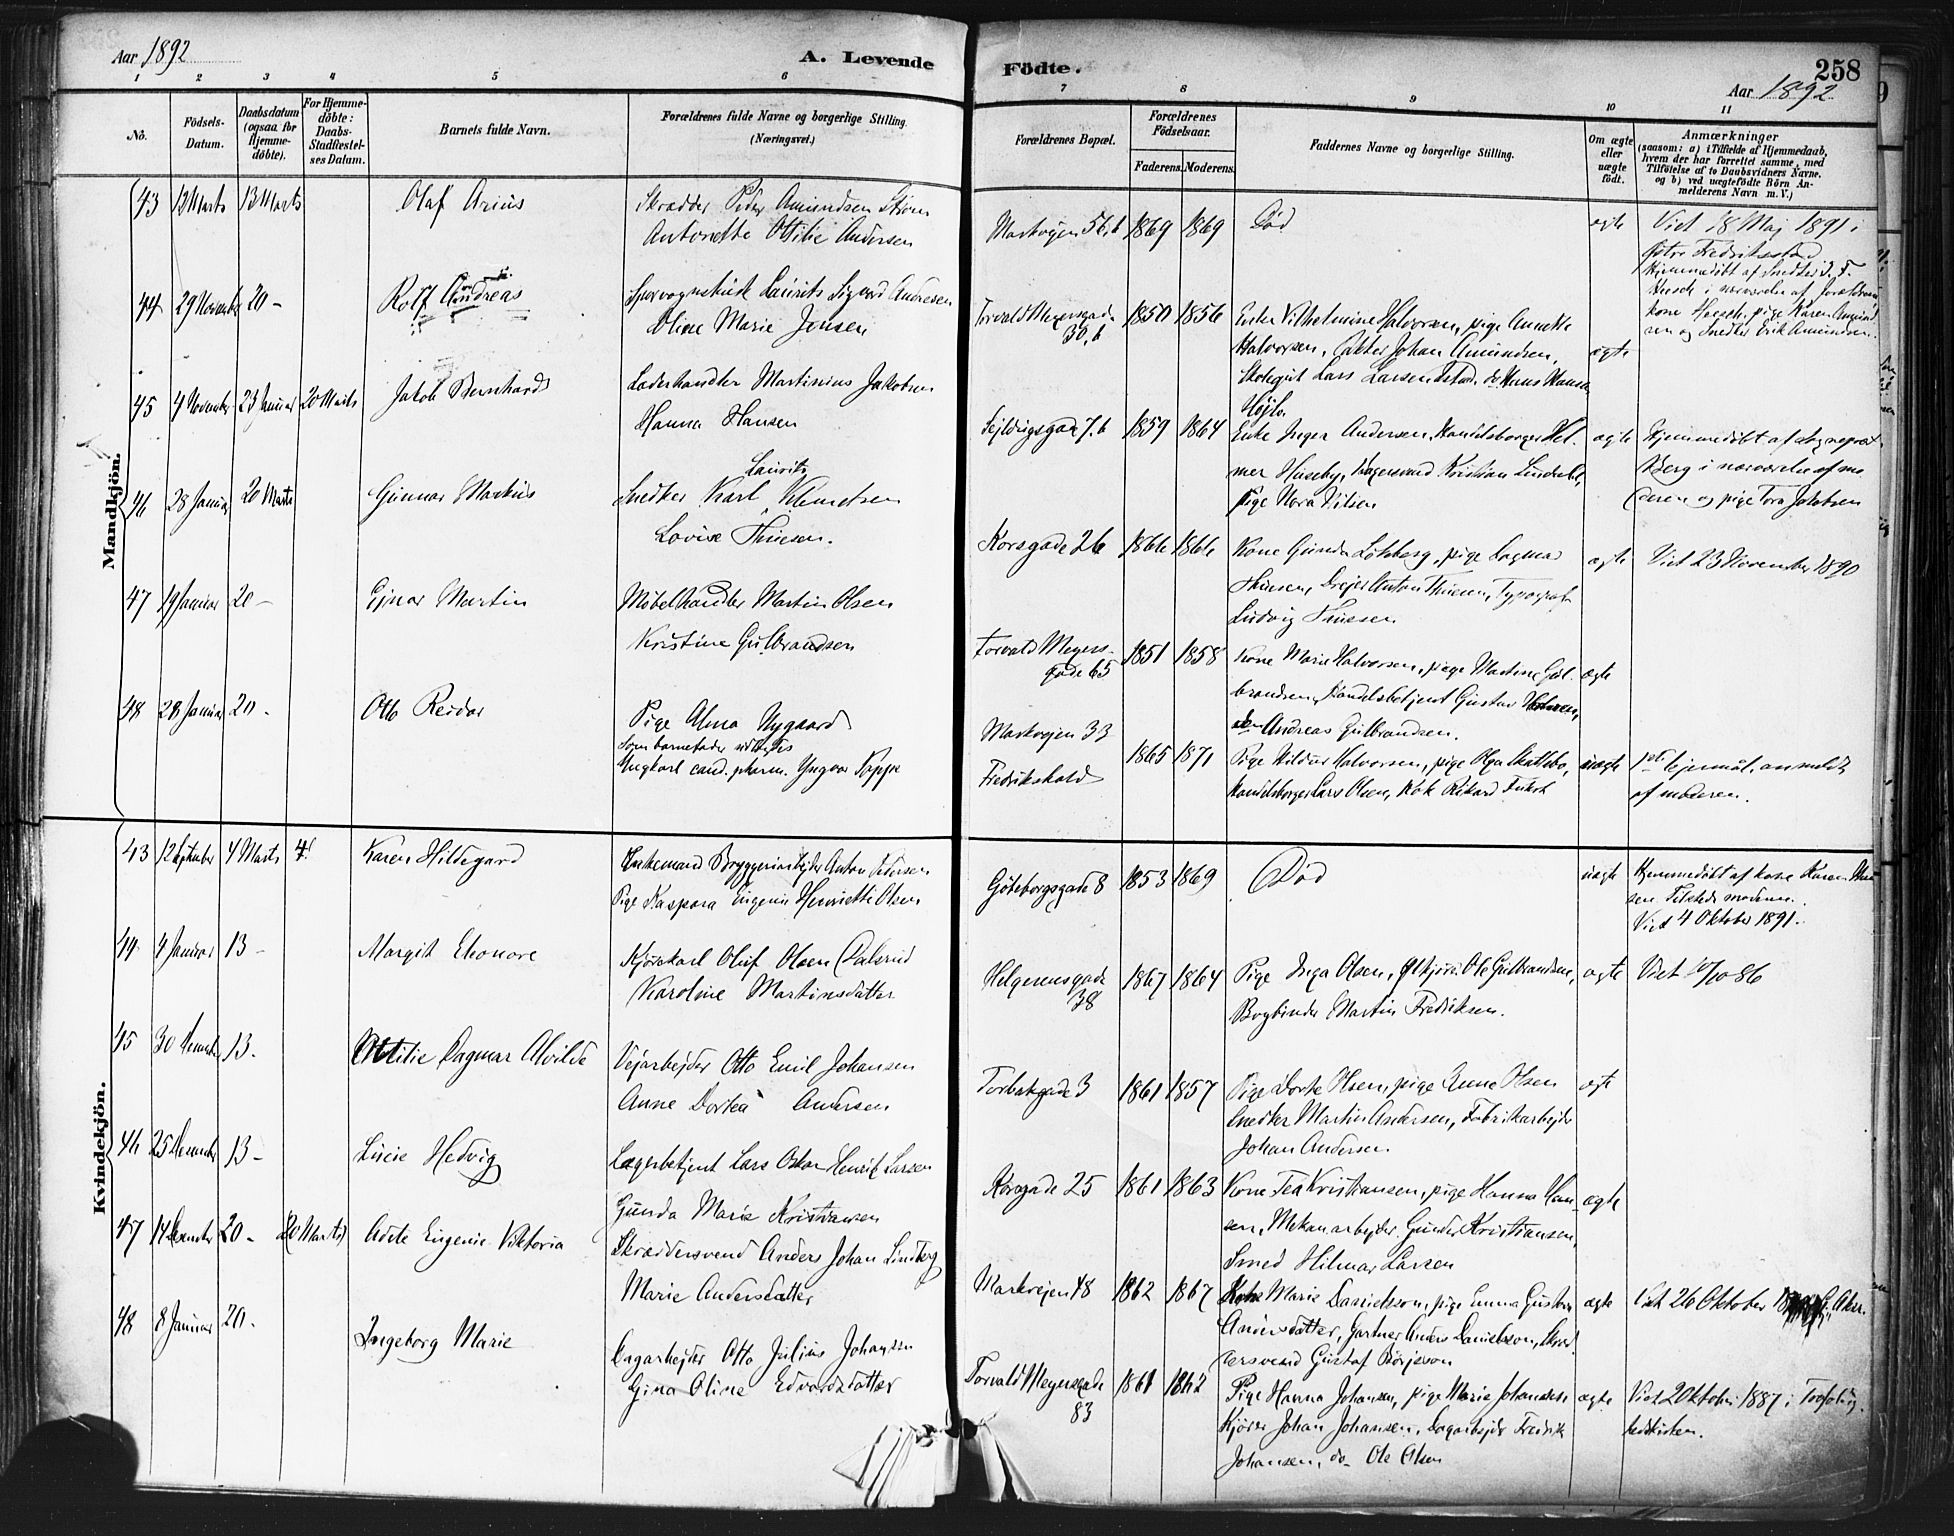 Aar 1892
A. Levende
Födte.
258
Aar 1892
1 2 3 4 5 6 7 8 9 10 11
No.
Födsels-
Datum.
Daabsdatum
(ogsaa for
Hjemme-
döbte).
For Hjemme-
döbte:
Daabs-
Stadfæstel-
ses Datum.
Barnets fulde Navn.
Forældrenes fulde Navne og borgerlige Stilling.
(Næringsvei.)
Forældrenes Bopæl.
Forældrenes
Födselsaar.
Faderens. Moderens.
Faddernes Navne og borgerlige Stilling.
Om ægte
eller
uægte
födt.
Anmærkninger
(saasom: a) i Tilfælde af Hjemmedaab,
hvem der har forrettet samme, med
Tilföielse af to Daabsvidners Navne.
og b) ved uægtefödte Börn An-
melderens Navn m. V.)
Mandkjön.
43 13 Marts 13 Marts Olaf Arius
Skrædder Peder Amundsen Strøm
Antonette Ottilie Andersen
Markvejen 56,b 1869 1869 Død ægte Viet 18 Maj 1891 i
østre Fredriksstad
Hjemmedöbt af
44 29 November 20 - Rolf Andreas
Sporvognskusk Laurits Sigvard Andresen
Oline Marie Jensen
Torvald Meyersgade
30,b 1850 1856 Enke Vilhelmine Halvorsen, pige Annette
Halvorsen, Johan Amundsen, ægte
Lars Larsen do Hans Hansen
kone pige Karen
og Snedker Erik Amundsen.
45 4 November 23 Januar 20 Marts Jakob Bernhard
Læderhandler Martinius Jakobsen
Hanna Hansen
Sejldugsgade 7.b 1859 1864 Enke Inger Andersen, Handelsborger Hel-
mer Huseby, Kristian
pige Nora Nilsen
ægte Hjemmedöbt af Sogneprest
Berg i nærværelse af mo
deren og pige Tora Jakobsen
46 28 Januar 20 Marts Gunnar Markus
Snedker Karl Laurits Knudsen
Lovise Thuesen.
Korsgade 26 1866 1866 Kone Gunda pige Dagmar
Thuesen, Drejer Anton Thuesen, Typograf
Ludvig Thuesen
ægte Viet 23 November 1890
47 19 Januar 20 - Ejnar Martin
Møbelhandler Martin Olsen
Kristine Gulbrandsen
Torvald Meyers-
gade 65 1851 1858 Kone Marie Halvorsen, pige Martine Gul-
brandsen, Handelsbetjent Gustav
Andreas Gulbrandsen.
ægte
48 28 Januar 20 - Otto Reidar
Pige Alma Nygaard
Som barnefader udlægges
Ungkarl cand. pharm. Yngvar Poppe
Markvejen 33
Fredrikshald
1865 1871 Pige Hildur Halvorsen, pige Olga
Handelsborger Lars Olsen, Kok Rikard
uægte 1ste lejermål, anmeldt
af moderen.
Kvindekjön.
43 12 September 4 Marts 4 Karen Hildegard
Enkemand Bryggeriarbejder Anton Pedersen
Pige Kaspara Eugenie Henriette Olsen
Göteborgsgade 8 1853 1869 Död uægte
Hjemmedöbt af kone Karen
moderen.
Viet 4 Oktober 1891.
44 4 Januar 13 - Margit Eleonore
Kjørekarl Oluf Olsen Dalsrud
Karoline Martinsdatter
Helgesensgade
38 1867 1864 Pige Inga Olsen, Ole Gulbrandsen,
Bogbinder Martin Fredriksen.
ægte Viet 10/10 86
45 30 December 13 - Ottilie Dagmar Alvilde
Vejarbejder Otto Emil Johansen
Anne Dortea Andersen
Torbakgade 3 1861 1857 Pige Dorte Olsen, pige Anne Olsen
Snedker Martin Andersen, Fabrikarbejder
Johan Andersen
ægte
46 25 December 13 - Lucie Hedvig
Lagerbetjent Lars Oskar Henrik Larsen
Gunda Marie Kristiansen
Korsgade 25 1861 1863 Kone Tea Kristiansen, pige Hanna Han-
sen, Mekan.arbejder Gunder Kristiansen,
Smed Hilmar Larsen
ægte
47 14 December 20 - (20 Marts) Adele Eugenie Viktoria
Skræddersvend Anders Johan Lindberg
Marie Andersdatter
Markvejen 48 1862 1867 Kone Marie Danielsson, pige Emma Gustava
Andersdatter, Gartner Anders Danielsson, Skræd-
dersvend Gustaf Börjesson
ægte Viet 26 Oktober
48 8 Januar 20 - Ingeborg Marie
Dagarbejder Otto Julius Johansen
Gina Oline Edvardsdatter
Torvald Meyersgade
83 1861 1862 Pige Hanna Johansen, pige Marie Johansen
Kjører Johan Johansen, Dagarbejder Fredrik
Johansen, do - Ole Olsen
ægte Viet 2 Oktober 1887 i Trefoldig-
hedskirken.